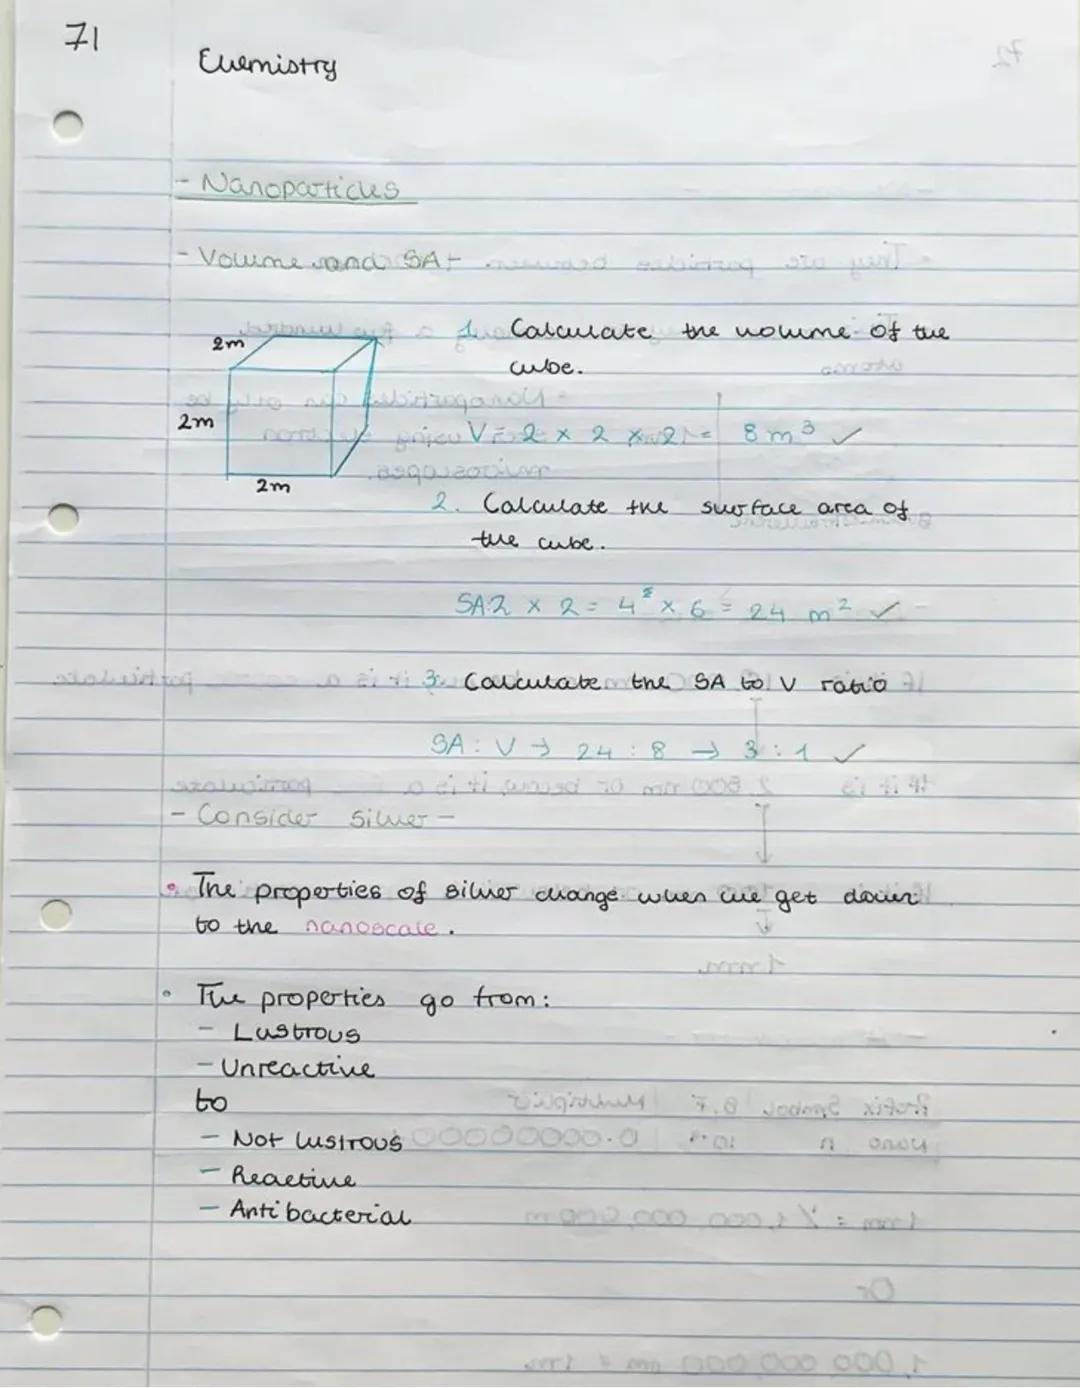 71
Chemistry
- Nanoparticles
- Volume and SA -
1. Calculate the volume of the
cube.
2m
2m
2m
V = 2 x 2 x 2 = 8 m³ ✓
2. Calculate the surface area of
the cube.
SA: 2 x 2 = 4² x 6 = 24 m² ✓
3. Calculate the SA to V ratio
SA : V → 24 : 8 → 3 : 1 ✓
- Consider silver -
• The properties of silver change when we get down
to the nanoscale.
• The properties go from:
- Lustrous
- Unreactive
to
- Not lustrous
- Reactive
- Antibacterial